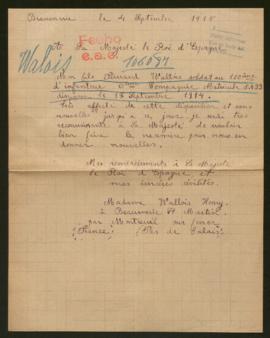 Beaumerie le 4 Septembre 1915
A Sa Majesté le Roi d'Espagne
Fecho
Walois
106097
Mon fils Wallois soldat au
d'infanterie Compagnie Matricule 5433
disparu le 18 Septembre 1914.
très affecté de cette disparition et sans
nouvelles jusqu'à ce jour je serais très
reconnaissante à Sa Majesté de vouloir
bien faire le nécessaire pour nous en
donner nouvelles.
Mes remerciements à Sa Majesté
le Roi d'Espagne et
mes sincères civilités.
Madame Wallois Henry
à Beaumerie St Martin
par Montreuil sur mer
(France) (Pas de Calais)